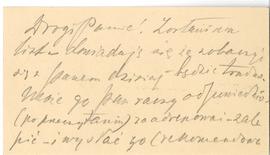 Drogi Panie! Zostawiam
list - dowiaduję się że zobaczyć
się z Panem dzisiaj będzie trudno.
go Pan raczy odpowiednio
(po przeczytaniu) zaadresować - zale
pić - i wysłać go (rekomendowa